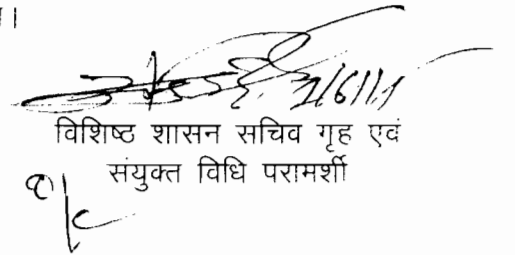 ।
1/6/11
विशिष्ठ शासन सचिव गृह एवं
संयुक्त विधि परामर्शी